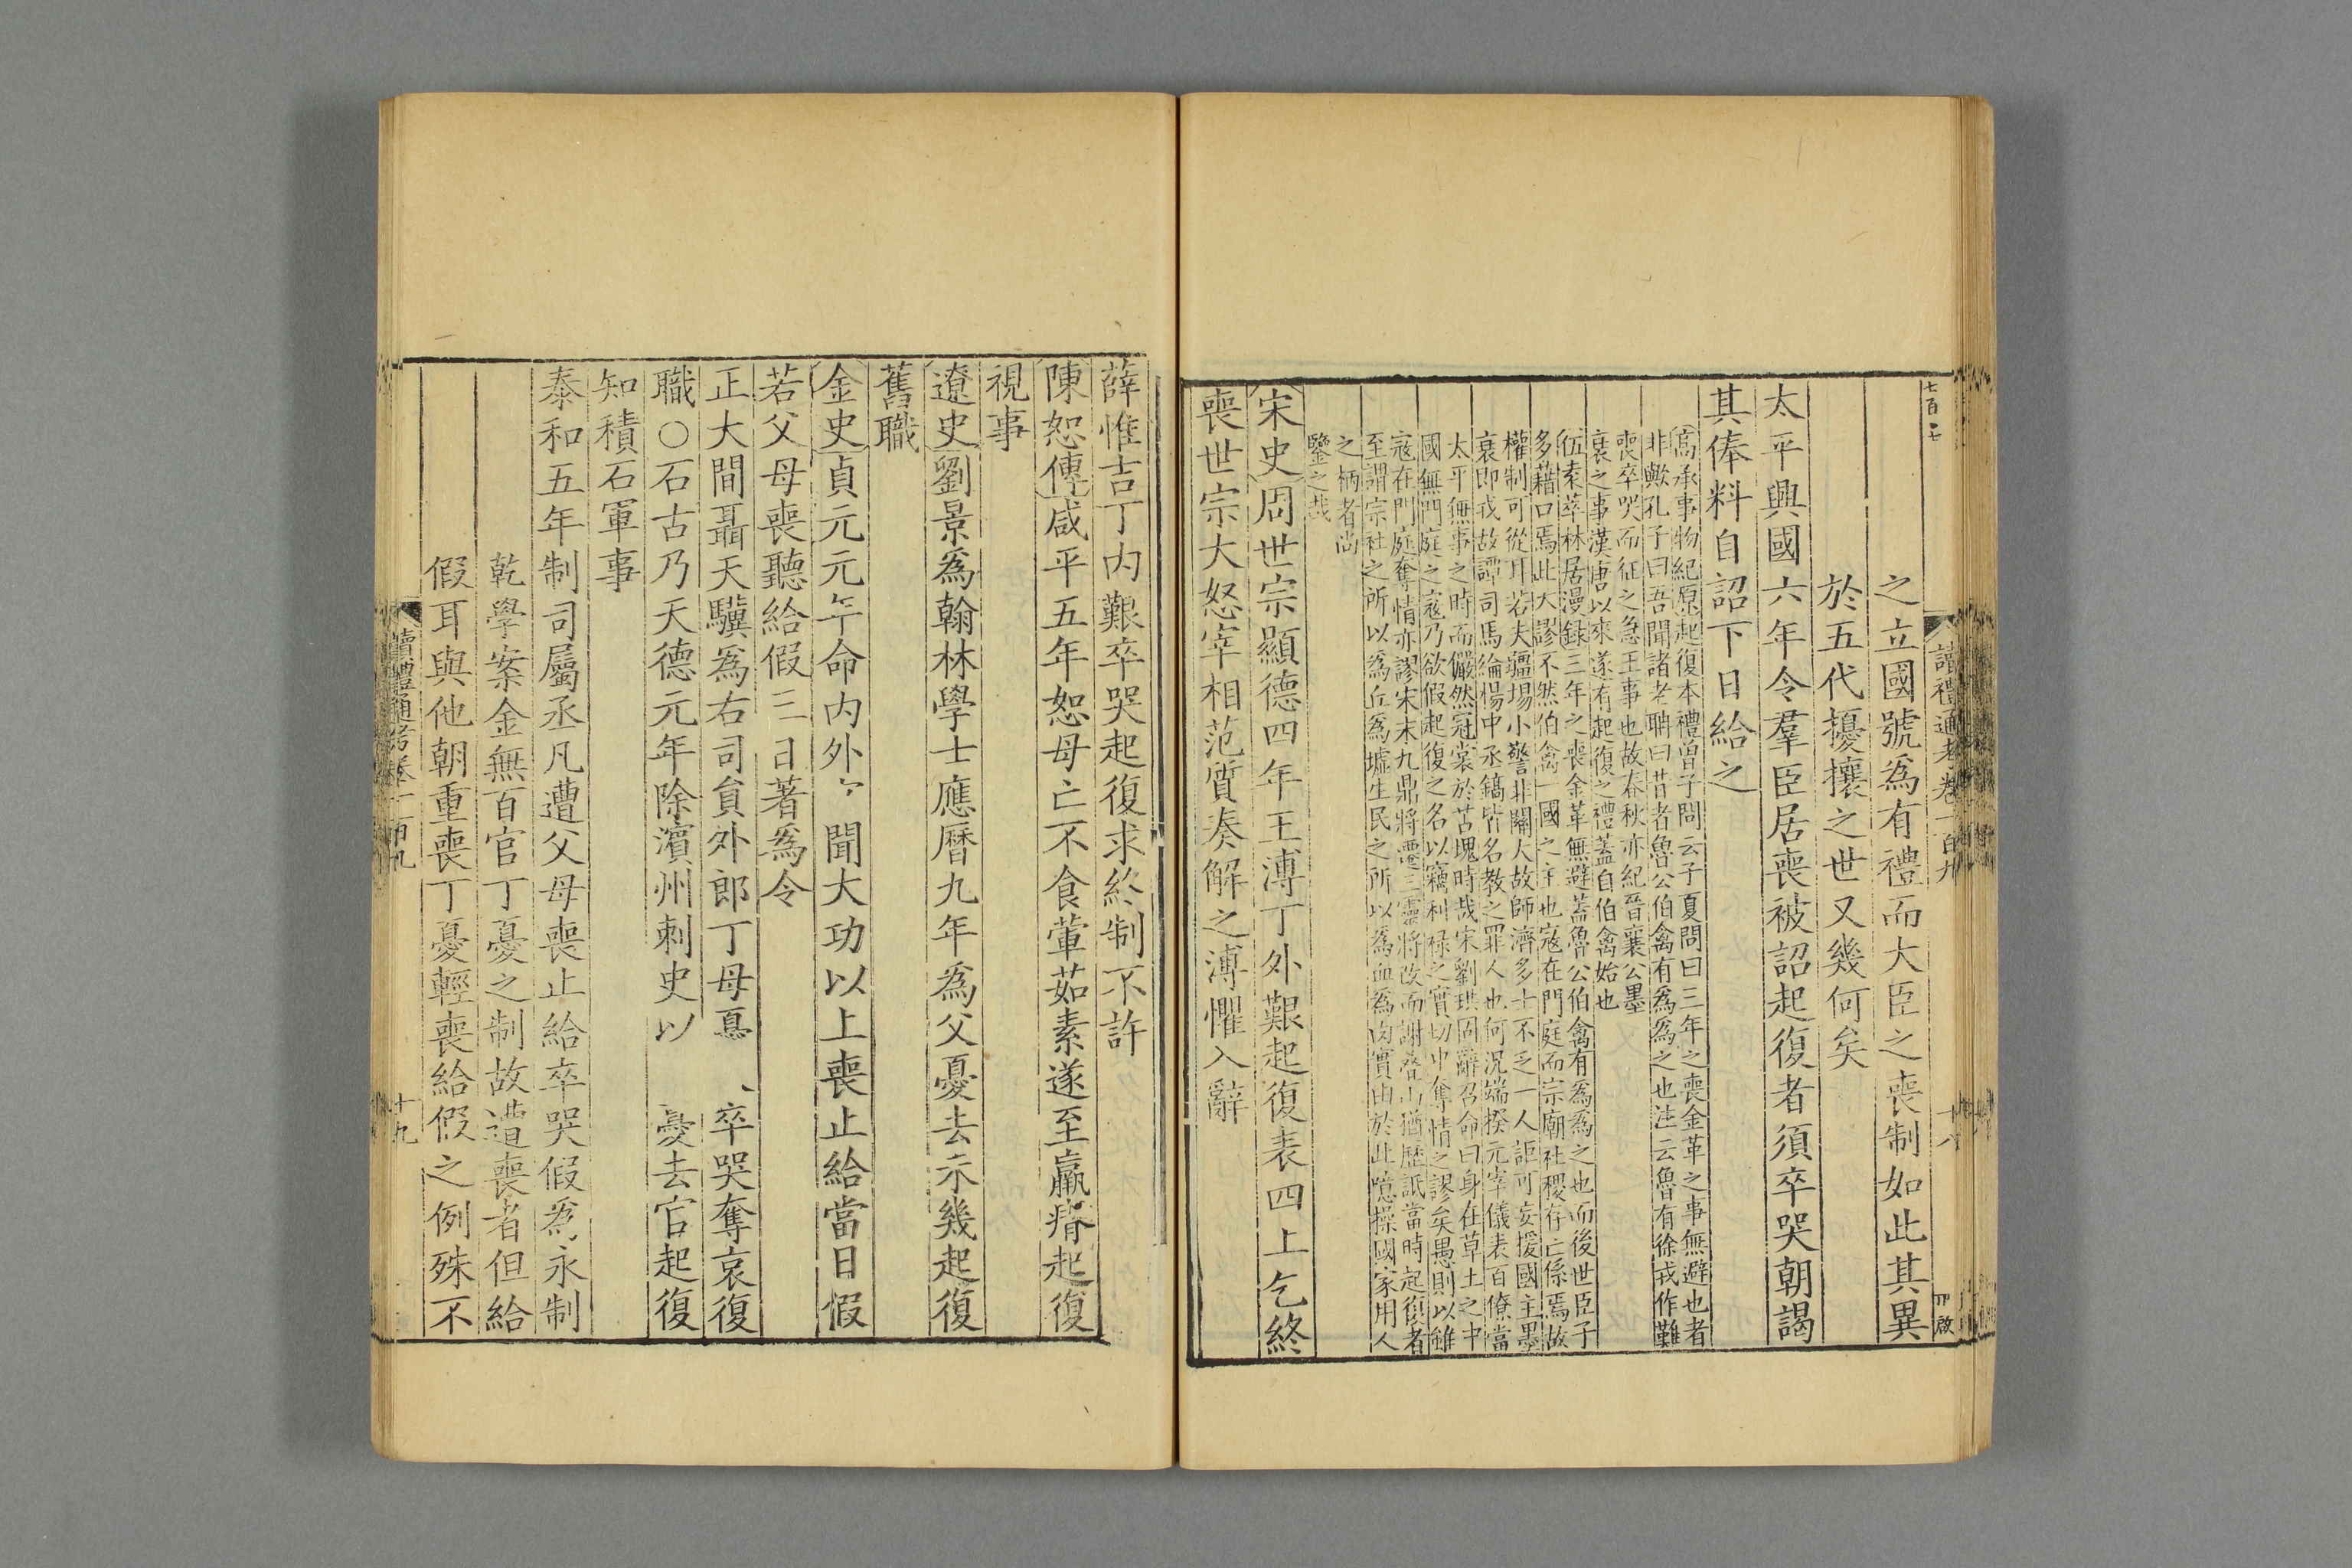 七百七
讀禮通考卷一百九
十八
之立國號為有禮而大臣之喪制如此其異
於五代擾攘之世又幾何矣
太平興國六年令羣臣居喪被詔起復者須卒哭朝謁
其俸料自詔下日給之
高承事物紀原起復本禮曾子問云子夏問曰三年之喪金革之事無避也者
非歟孔子曰吾聞諸老聃曰昔者魯公伯禽有為為之也注云魯有徐戎作難
喪卒哭而征之急王事也故春秋亦紀晉襄公墨
衰之事漢唐以來遂有起復之禮蓋自伯禽始也
伍索萃林居漫録三年之喪金革無避蓋魯公伯禽有為為之也而後世臣子
多藉口焉此大謬不然伯禽一國之主也寇在門庭而宗廟社稷存亡係焉故
權制可從耳若夫疆場小警非關大故師濟多士不乏一人詎可妄援國主墨
衰即戎故譚司馬綸楊中丞鎬皆名教之罪人也何況端揆元宰儀表百僚當
太平無事之時而儼然冠裳於苫塊時哉宋劉珙固辭召命曰身在草土之中
國無門庭之寇乃欲假起復之名以竊利祿之實切中奪情之謬矣愚則以雖
寇在門庭奪情亦謬宋末九鼎將遷三靈將改而謝疊山猶歷詆當時起復者
至謂宗社之所以為丘為墟生民之所以為血為肉實由於此噫操國家用人
之柄者尚
鑒之哉
宋史周世宗顯德四年王溥丁外艱起復表四上乞終
喪世宗大怒宰相范質奏解之溥懼入辭
薛惟吉丁内艱卒哭起復求終制不許
陳恕傳咸平五年恕母亡不食葷茹素遂至羸瘠起復
視事
遼史劉景為翰林學士應曆九年為父憂去未幾起復
舊職
金史貞元元年命内外官聞大功以上喪止給當日假
若父母喪聽給假三日著為令
正大間聶天驥為右司員外郎丁母憂卒哭奪哀復
職○石古乃天德元年除濱州刺史以憂去官起復
知積石軍事
泰和五年制司屬丞凡遭父母喪止給卒哭假為永制
乾學案金無百官丁憂之制故遭喪者但給
假耳與他朝重喪丁憂輕喪給假之例殊不
讀禮通考卷一百九
十九